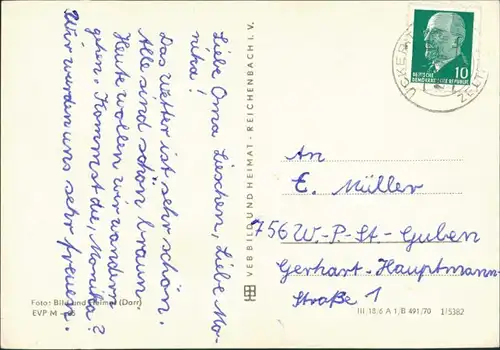 Liebe Oma Lieschen, Liebe Mo-
nika!
Das Wetter ist sehr schön.
Alle sind schön braun.
Heute wollen wir wandern
gehen. Kommst du, Monika?
Wir würden uns sehr freuen.
Foto: Bild und Heimat (Darr)
EVP M
VEB BILD UND HEIMAT · REICHENBACH i. V.
DEUTSCHE
DEMOKRATISCHE REPUBLIK
10
An
E. Müller
756 W.-P.-St.-Guben
Gerhart-Hauptmann-
Straße 1
III 18 6 A 1/B 491/70 1/5382